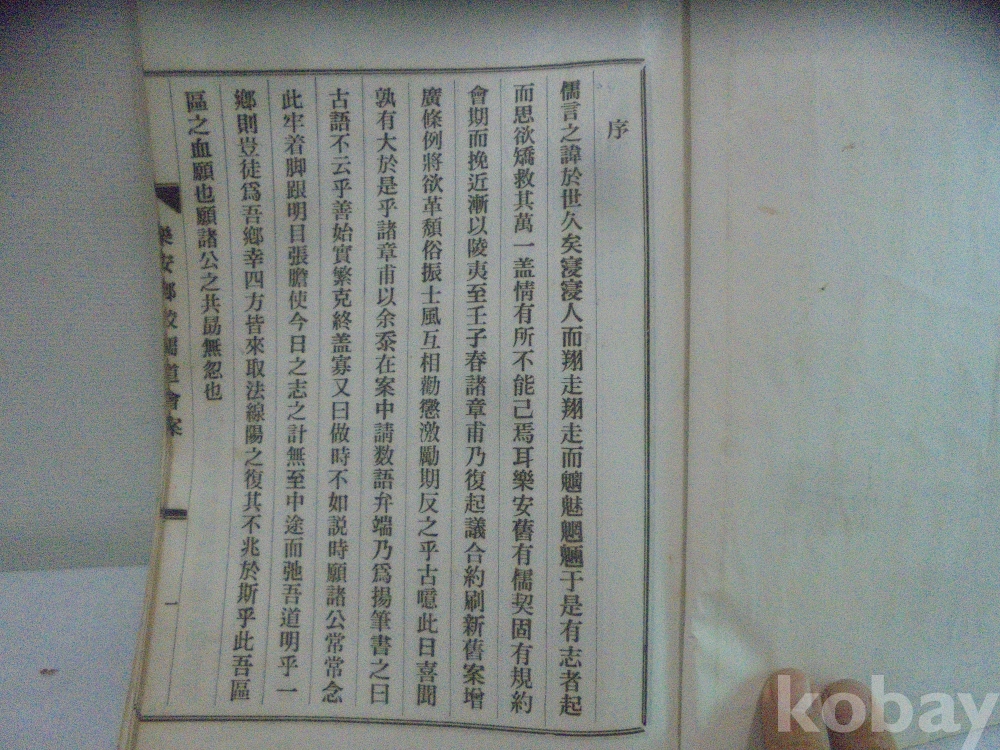 序
儒言之諱於世久矣寖寖人而翔走翔走而魑魅魍魎于是有志者起
而思欲矯救其萬一盖情有所不能己焉耳樂安舊有儒契固有規約
會期而挽近漸以陵夷至壬子春諸章甫乃復起議合約刷新舊案增
廣條例將欲革頹俗振士風互相勸懲激勵期反之乎古噫此日喜聞
孰有大於是乎諸章甫以余忝在案中請数語弁端乃爲揚筆書之曰
古語不云乎善始實繁克終盖寡又曰做時不如説時願諸公常常念
此牢着脚跟明目張膽使今日之志之計無至中途而弛吾道明乎一
鄕則豈徒爲吾鄕幸四方皆來取法線陽之復其不兆於斯乎此吾區
區之血願也願諸公之共勗無忽也
樂安鄕校 道會案
一
kobay